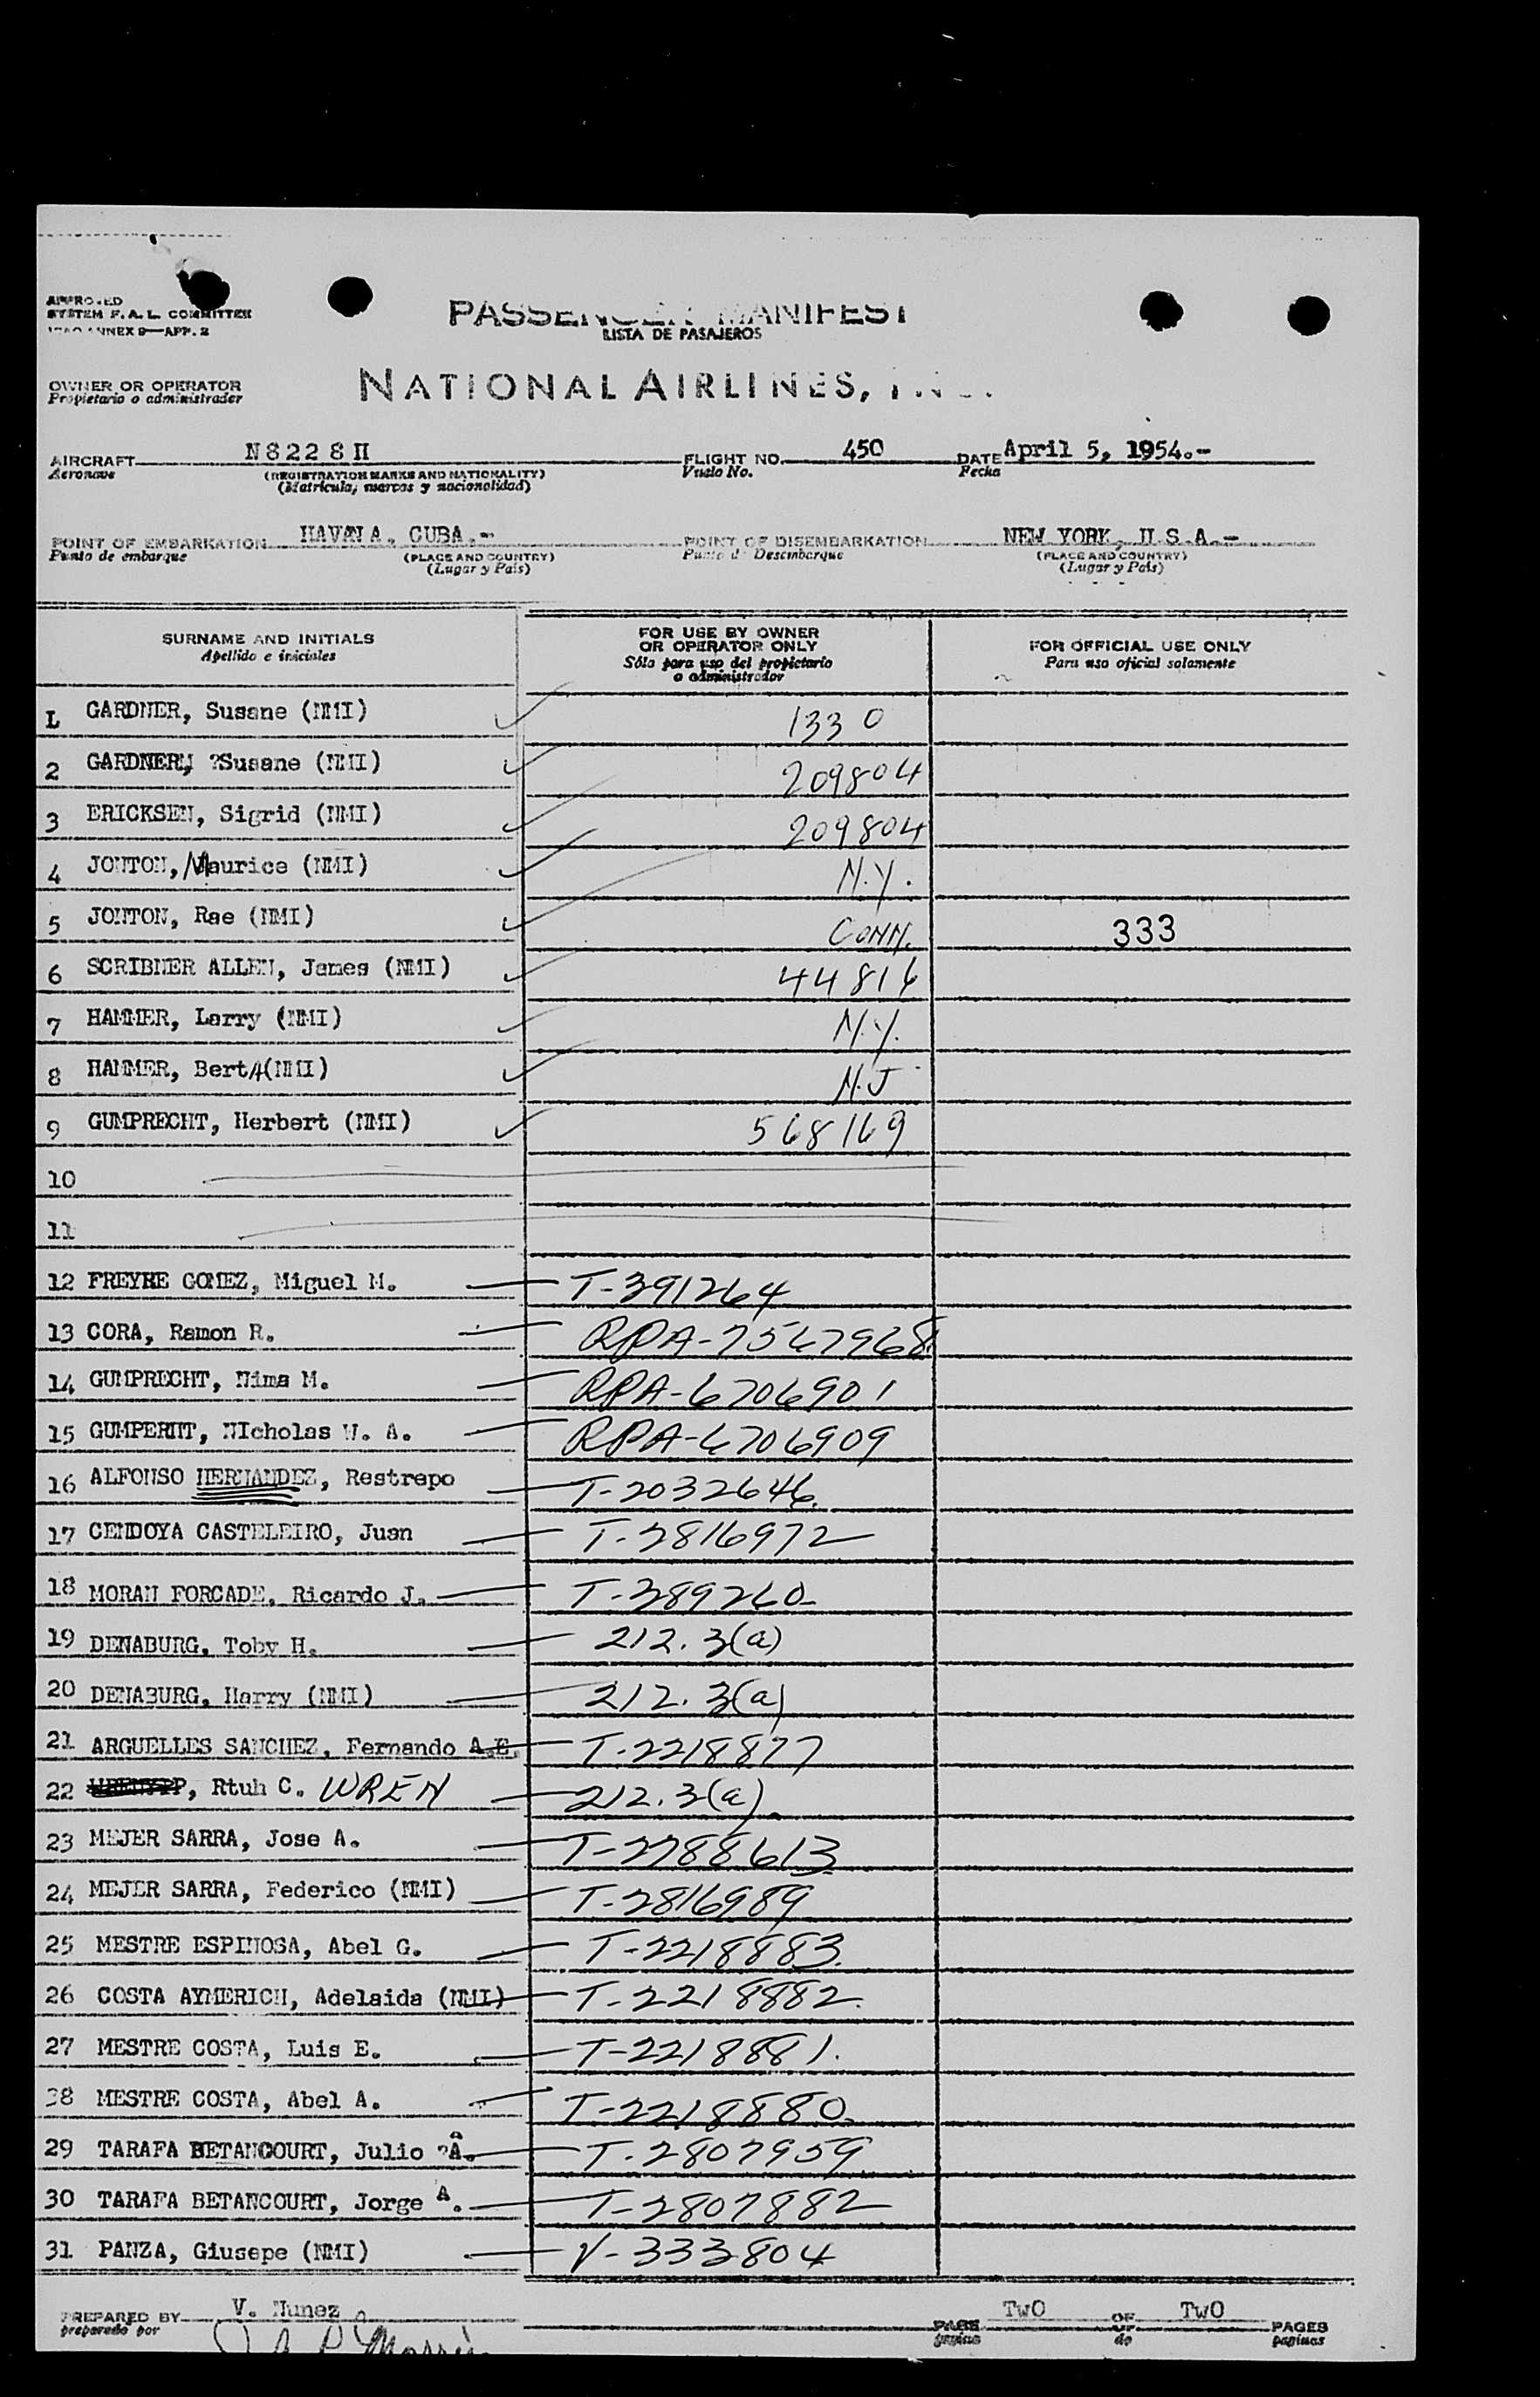 APPROVED
SYSTEM F. A. L. COMMITTEE
ANNEX 9—APP. 2
PASSENGER MANIFEST
LISTA DE PASAJEROS
OWNER OR OPERATOR
Propietario o administrador
NATIONAL AIRLINES, INC.
AIRCRAFT N8228H FLIGHT NO. 450 DATE April 5, 1954.-
Aeronave (REGISTRATION MARKS AND NATIONALITY) Vuelo No. Fecha
(Matricula, marcas y nacionalidad)
POINT OF EMBARKATION HAVANA, CUBA.- POINT OF DISEMBARKATION NEW YORK, U.S.A.-
Punto de embarque (PLACE AND COUNTRY) Punto de Desembarque (PLACE AND COUNTRY)
(Lugar y País) (Lugar y País)
SURNAME AND INITIALS FOR USE BY OWNER OR OPERATOR ONLY FOR OFFICIAL USE ONLY
Apellido e iniciales Sólo para uso del propietario o administrador Para uso oficial solamente
L GARDNER, Susane (NMI) 1330
2 GARDNER, ?Susane (NMI) 209804
3 ERICKSEN, Sigrid (NMI) 209804
4 JONTON, Maurice (NMI) N.Y.
5 JONTON, Rae (NMI) CONN. 333
6 SCRIBNER ALLEN, James (NMI) 44816
7 HAMMER, Larry (NMI) N.Y.
8 HAMMER, BertA(NMI) N.J
9 GUMPRECHT, Herbert (NMI) 568169
10
11
12 FREYRE GOMEZ, Miguel M. T-391264
13 CORA, Ramon R. RPA-7567968
14 GUMPRECHT, Nima M. RPA-6706901
15 GUMPERHT, NIcholas W. A. RPA-6706909
16 ALFONSO HERNANDEZ, Restrepo T-2032646.
17 CENDOYA CASTELEIRO, Juan T-2816972
18 MORAN FORCADE, Ricardo J. T-389260
19 DENABURG, Toby H. 212.3(a)
20 DENABURG, Harry (NMI) 212.3(a)
21 ARGUELLES SANCHEZ, Fernando A.E. T-2218877
22 , Rtuh C. WREN 212.3(a)
23 MEJER SARRA, Jose A. T-2788613
24 MEJER SARRA, Federico (NMI) T-2816989
25 MESTRE ESPINOSA, Abel G. T-2218883.
26 COSTA AYMERICH, Adelaida (NMI) T-2218882.
27 MESTRE COSTA, Luis E. T-2218881.
38 MESTRE COSTA, Abel A. T-2218880.
29 TARAFA BETANCOURT, Julio ?A. T-2807959
30 TARAFA BETANCOURT, Jorge A. T-2807882
31 PANZA, Giusepe (NMI) V-333804
PREPARED BY V. Nunez PAGE TwO OF TwO PAGES
preparado por pagina de paginas